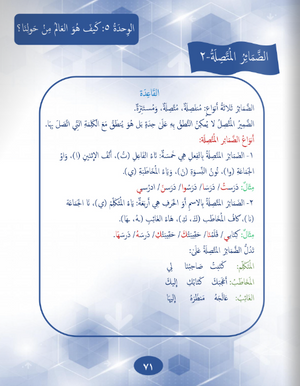 الوَحدَةُ ٥: كَيْفَ هُوَ العَالَمُ مِنْ حَولِنَا؟
الضَّمَائِرُ المُتَّصِلَةُ-٢
القَاعِدَة
الضَّمَائِرُ ثَلاثَةُ أَنوَاعٍ: مُنفَصِلَةٌ، مُتَّصِلَةٌ، وَمُستَتِرَةٌ.
الضَّمِيرُ المُتَّصِلُ لَا يُمكِنُ النُّطقُ بِهِ عَلَى حِدَةٍ بَل هُوَ يُنطَقُ مَعَ الكَلِمَةِ الَّتِي اتَّصَلَ بِهَا.
أَنوَاعُ الضَّمَائِرِ المُتَّصِلَةِ:
١- الضَّمَائِرُ المُتَّصِلَةُ بِالفِعلِ هِيَ خَمسَةٌ: تَاءُ الفَاعِلِ (تُ)، أَلِفُ الإِثنَينِ (ا)، وَاوُ
الجَمَاعَةِ (وا)، نُونُ النِّسوَةِ (نَ)، وَيَاءُ المُخَاطَبَةِ (ي).
مِثَالٌ: دَرَستُ، دَرَسَا، دَرَسُوا، دَرَسنَ، ادرُسِي.
٢- الضَّمَائِرُ المُتَّصِلَةُ بِالاسمِ أَوِ الحَرفِ هِيَ أَربَعَةٌ: يَاءُ المُتَكَلِّمِ (ي)، نَا الجَمَاعَةِ
(نَا)، كَافُ المُخَاطَبِ (كَ، كِ)، هَاءُ الغَائِبِ (ـهُ، ـهَا).
مِثَالٌ: كِتَابِي، قَلَمُنَا، حَقِيبَتُكَ، حَقِيبَتُكِ، دَرسُهُ، دَرسُهَا.
تَدُلُّ الضَّمَائِرُ المُتَّصِلَةُ عَلَى:
المُتَكَلِّمِ: كَتَبتُ صَاحِبُنَا لِي
المُخَاطَبِ: كِتَابُكَ إِلَيكَ
الغَائِبِ: إِلَيهَا
٧١